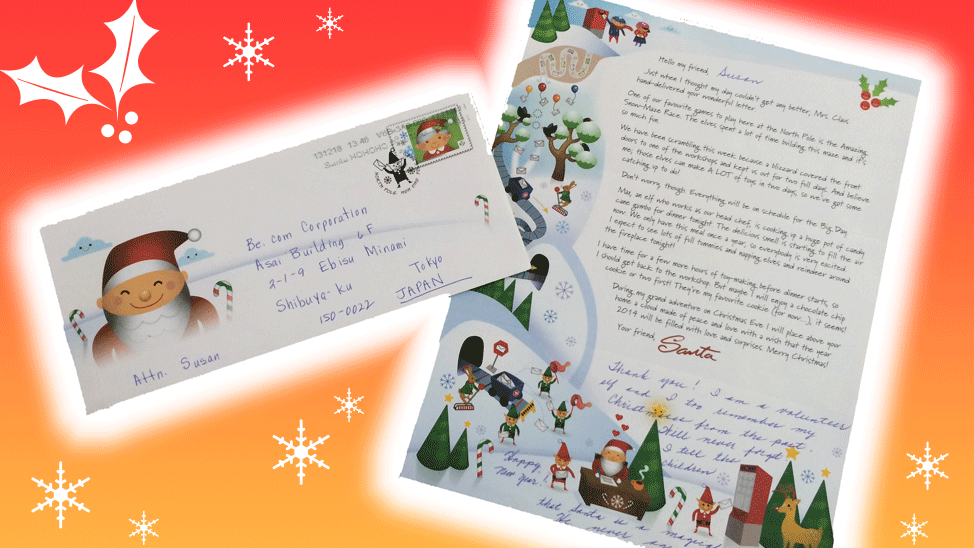 131218 13:46
HOHOHO
NORTH POLE
Be.com Corporation
Asai Building 6F
2-1-9 Ebisu Minami
Shibuya-ku Tokyo
150-0022 JAPAN
Attn. Susan
Hello my friend, Susan
Just when I thought my day couldn't get any better, Mrs. Claus
hand-delivered your wonderful letter.
One of our favourite games to play here at the North Pole is the Amazing
Snow-Maze Race. The elves spent a lot of time building this maze and it's
so much fun.
We have been scrambling this week because a blizzard covered the front
doors to one of the workshops and kept us out for two full days. And believe
me, those elves can make A LOT of toys in two days, so we've got some
catching up to do!
Don't worry though. Everything will be on schedule for the Big Day.
May, an elf who works as our head chef, is cooking up a huge pot of candy
cane gumbo for dinner tonight. The delicious smell is starting to fill the air
now. We only have this meal once a year, so everybody is very excited.
I expect to see lots of full tummies and napping elves and reindeer around
the fireplace tonight!
I have time for a few more hours of toy-making before dinner starts, so
I should get back to the workshop. But maybe I will enjoy a chocolate chip
cookie or two first! They're my favourite cookie (for now...), it seems!
During my grand adventure on Christmas Eve I will place above your
home a cloud made of peace and love with a wish that the year
2014 will be filled with love and surprises. Merry Christmas!
Your friend, Santa
Thank you! I am a volunteer
elf and I too remember my
Christmases from the past
I'll never forget
I tell the
children
Happy
New Year!
that Santa is a magical
He never